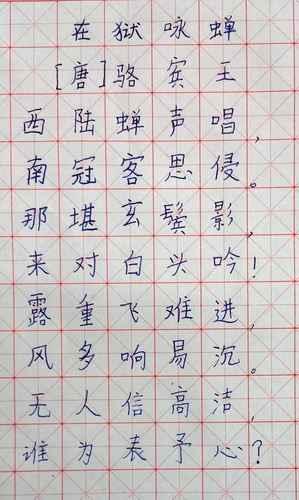 在狱咏蝉
[唐]骆宾王
西陆蝉声唱,
南冠客思侵。
那堪玄鬓影,
来对白头吟!
露重飞难进,
风多响易沉。
无人信高洁,
谁为表予心?